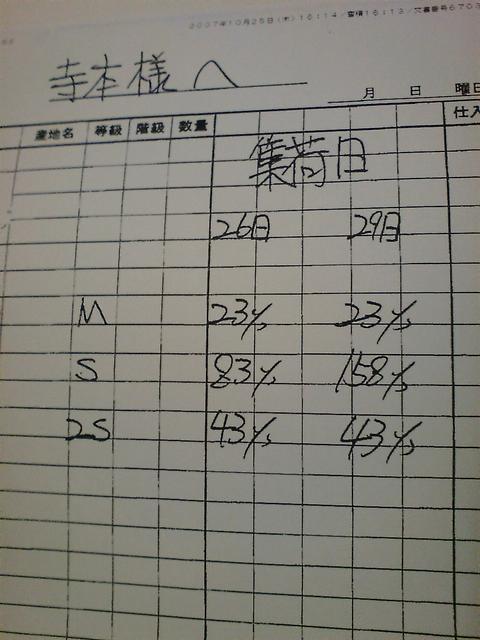 2007年10月25日(木)16:14/蓄積16:13/文書番号6703
寺本様へ
月 日 曜日
産地名 等級 階級 数量 仕入
集荷日
26日 29日
M 23ケース 23ケース
S 83ケース 158ケース
2S 43ケース 43ケース